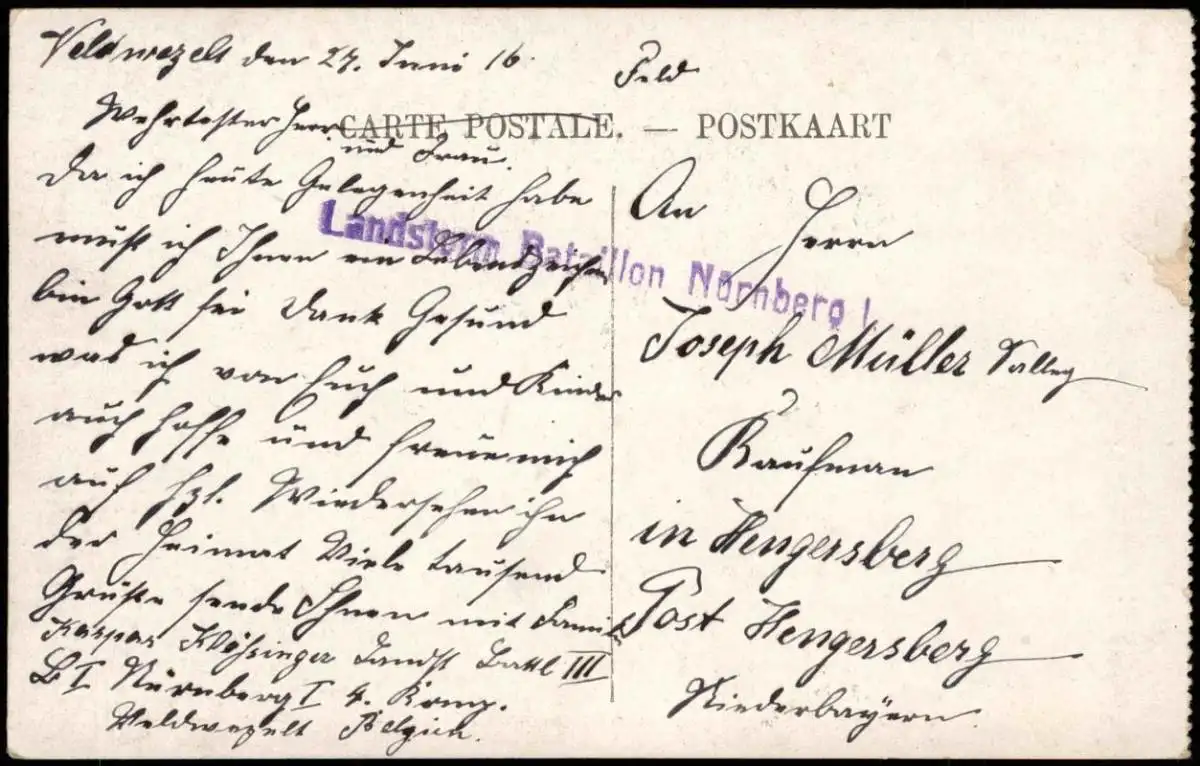 Veldwezelt den 27. Juni 16.
Feld
CARTE POSTALE. — POSTKAART
Wehrtester Herr
und Frau.
Da ich heute Gelegenheit habe
muß ich Ihnen ein Lebenszeichen
bin Gott sei Dank Gesund
was ich von Euch und Kinder
auch hoffe und freue mich
auf Wiedersehen ihn
der Heimat Viele tausend
Grüße sende Ihnen mit Famil
Kaspar Landst Battl III
B I Nürnberg I 4. Komp.
Veldwezelt Belgien.
Landsturm Bataillon Nürnberg I.
An Herrn
Joseph Müller
Kaufman
in Hengersberg
Post Hengersberg
Niederbayern